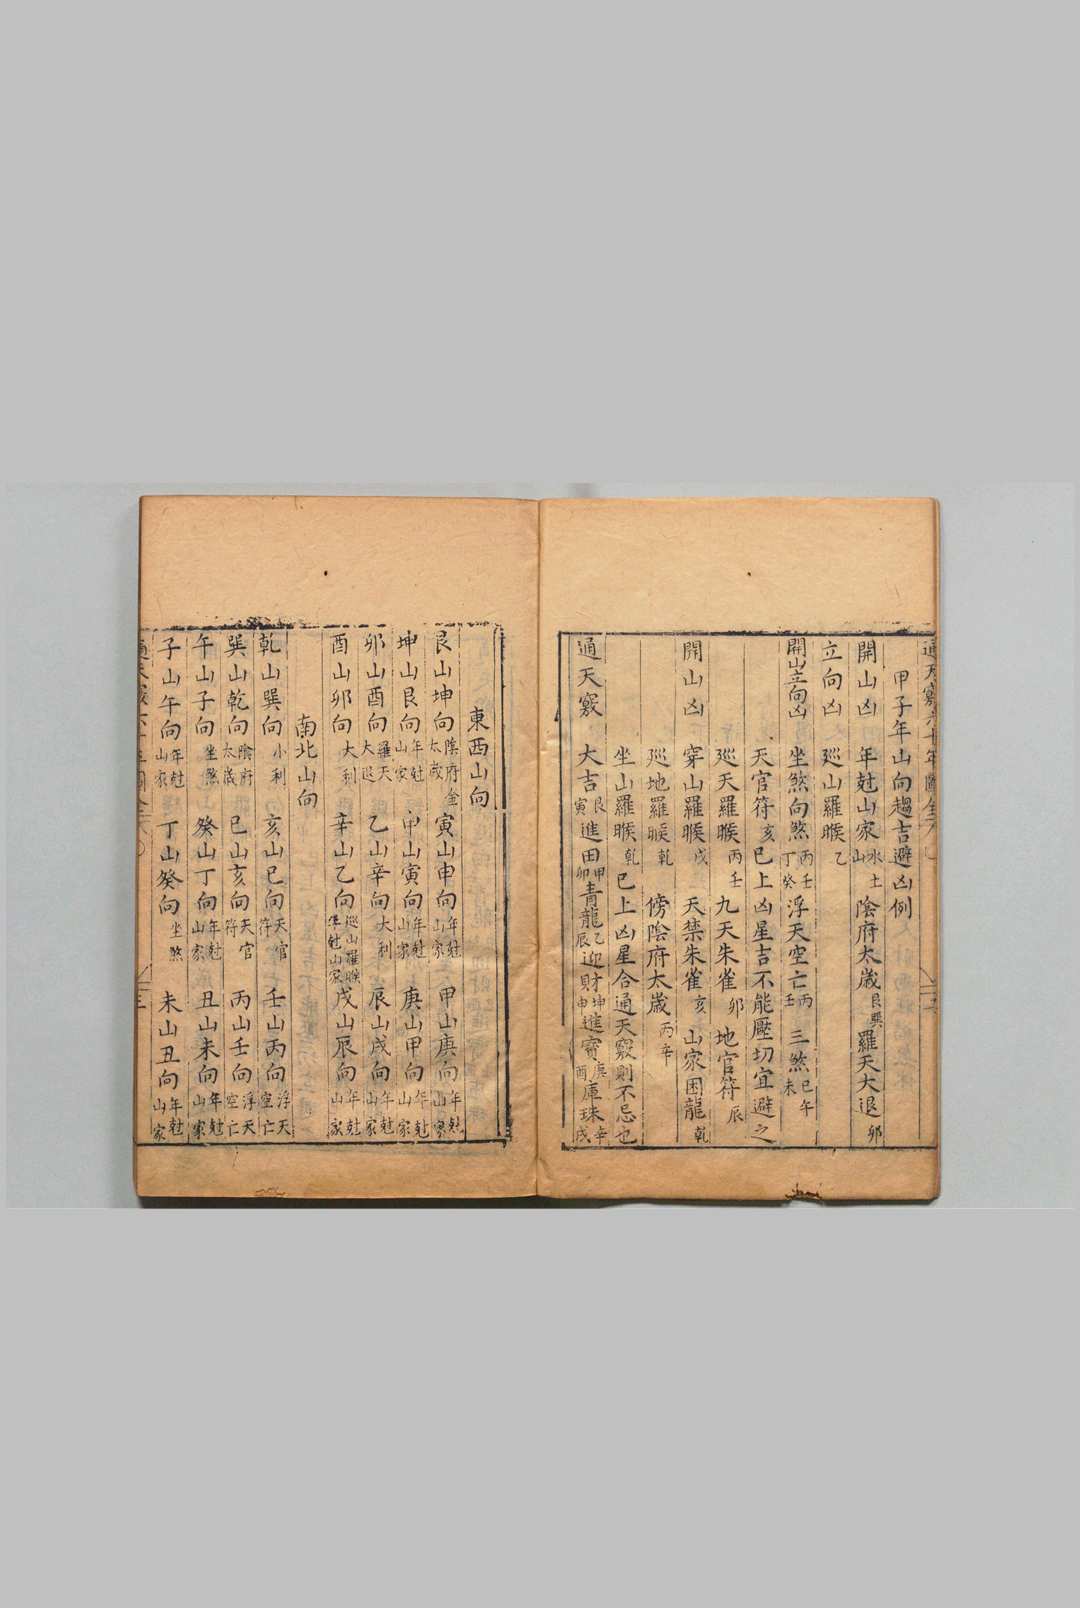 甲子年山向趨吉避凶例
開山凶 年尅山家水土山 陰府太歲艮巽 羅天大退卯
立向凶 巡山羅睺乙
開山立向凶 坐煞向煞丙壬丁癸 浮天空亡丙壬 三煞巳午未
天官符亥 已上凶星吉不能壓切宜避之
巡天羅睺丙壬 九天朱雀卯 地官符辰
開山凶 穿山羅睺戌 天禁朱雀亥 山家困龍乾
巡地羅睺乾 傍陰府太歲丙辛
坐山羅睺乾 已上凶星合通天竅則不忌也
通天竅 大吉艮寅 進田甲卯 青龍乙辰 迎財坤申 進寶庚酉 庫珠辛戌
東西山向
艮山坤向陰府太歲 寅山申向年尅山家 甲山庚向年尅山家
坤山艮向年尅山家 申山寅向年尅山家 庚山甲向年尅山家
卯山酉向羅天大退 乙山辛向大利 辰山戌向年尅山家
酉山卯向大利 辛山乙向巡山羅睺年尅山家 戌山辰向年尅山家
南北山向
乾山巽向小利 亥山巳向天官符 壬山丙向浮天空亡
巽山乾向陰府太歲 巳山亥向天官符 丙山壬向浮天空亡
午山子向坐煞 癸山丁向年尅山家 丑山未向年尅山家
子山午向年尅山家 丁山癸向坐煞 未山丑向年尅山家